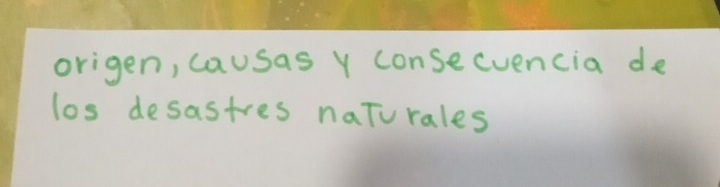 origen, causas y consecuencia de
los desastres naturales